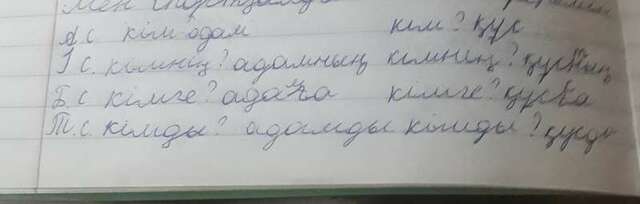 Мен спортзалда
А.С кім адам кім? құс
І с. кімнің? адамның кімнің? құстың
Б. с кімге? адамға кімге? құсба
Т. с. кімды? адамды кімды? құсды